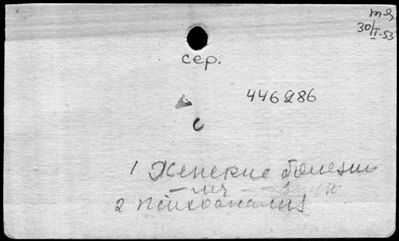 30/II-53
сер.
446286
1 Женские болезни
2 психоанализ